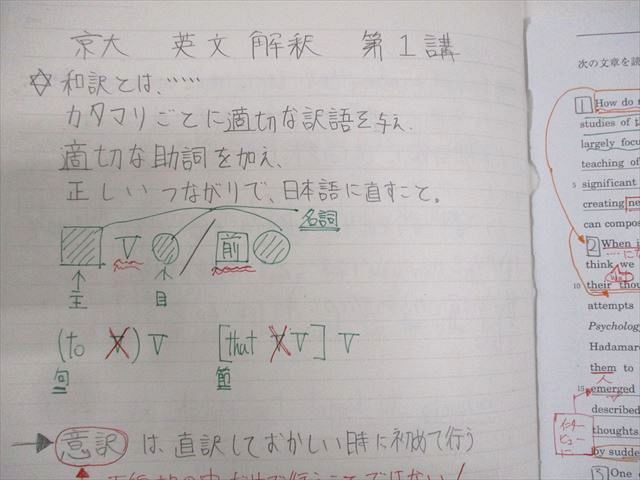 京大 英文解釈 第1講
☆和訳とは、……
カタマリごとに適切な訳語を与え、
適切な助詞を加え、
正しいつながりで、日本語に直すこと。
名詞
V / 前
↑ ↑
主 目
(to V) V [that V V] V
句 節
→ 意訳 は、直訳しておかしい時に初めて行う
次の文章を読
1 How do
studies of
largely focu
teaching of
5 significant
creating ne
can compos
2 When i
think we
10 their thou
attempts
Psycholog
Hadamar
them to
人
15 emerged
described
thoughts
by sudde
3 One